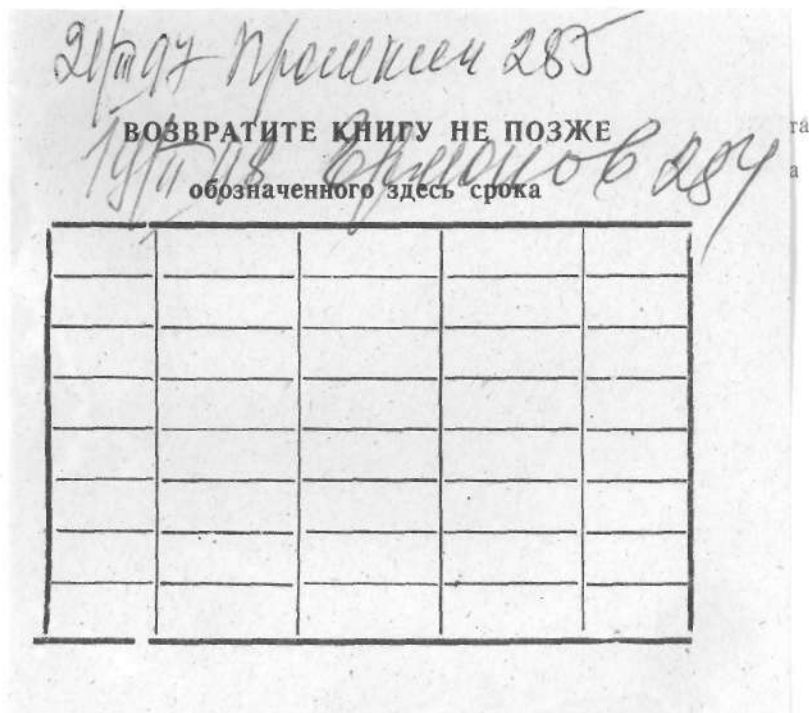 21/III 97 285
ВОЗВРАТИТЕ КНИГУ НЕ ПОЗЖЕ
19/II 98 Ермаков 284
обозначенного здесь срока
та
а